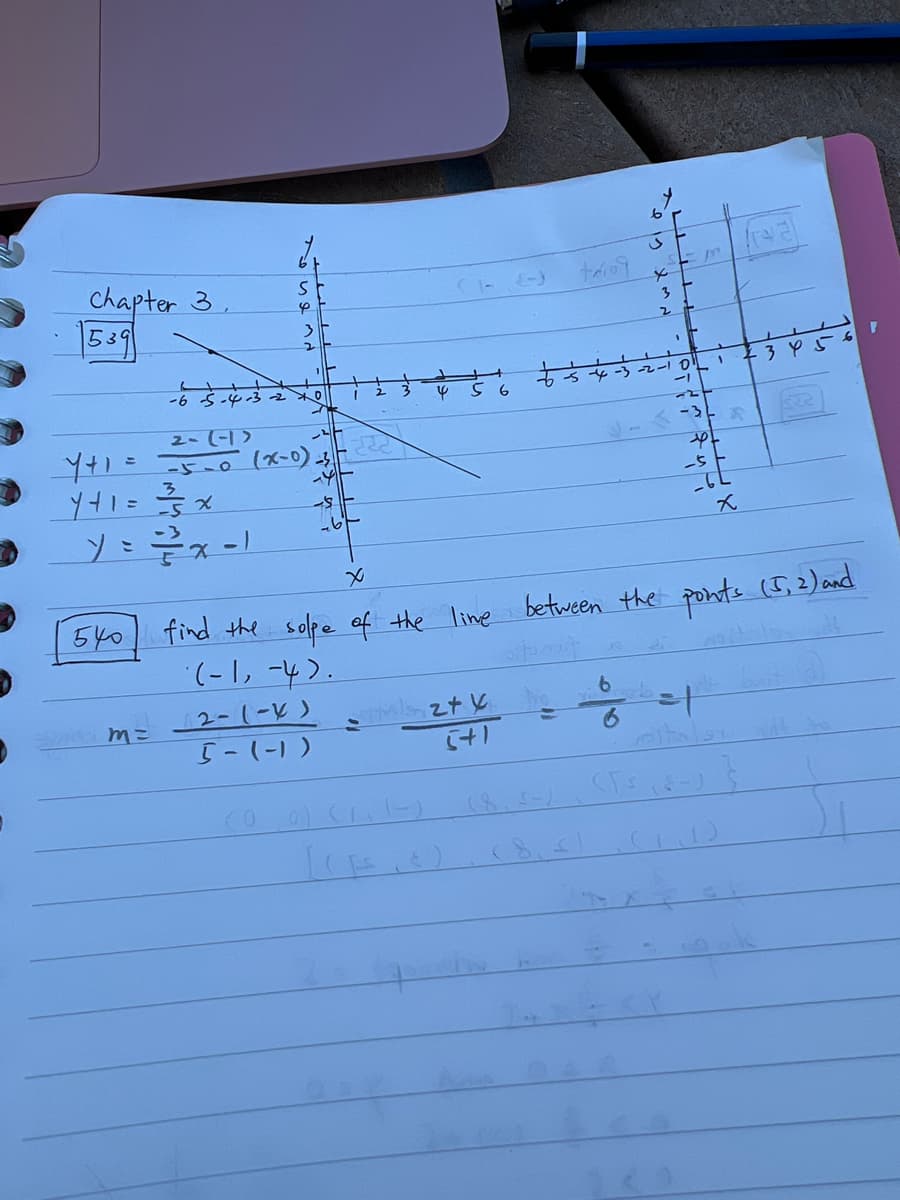 Chapter 3.
539
y
6
5
4
3
2
1
-6 -5 -4 -3 -2 -1 0 1 2 3 4 5 6
-1
-2
-3
-4
-5
-6
x
y
6
5
4
3
2
1
-6 -5 -4 -3 -2 -1 0 1 2 3 4 5 6
-1
-2
-3
-4
-5
-6
x
y+1 = 2-(-1) / -5-0 (x-0)
y+1 = 3/-5 x
y = -3/5 x -1
540 find the solpe of the line between the ponts (5, 2) and
(-1, -4).
m= 2-(-4) / 5-(-1) = 2+4 / 5+1 = 6/6 =1